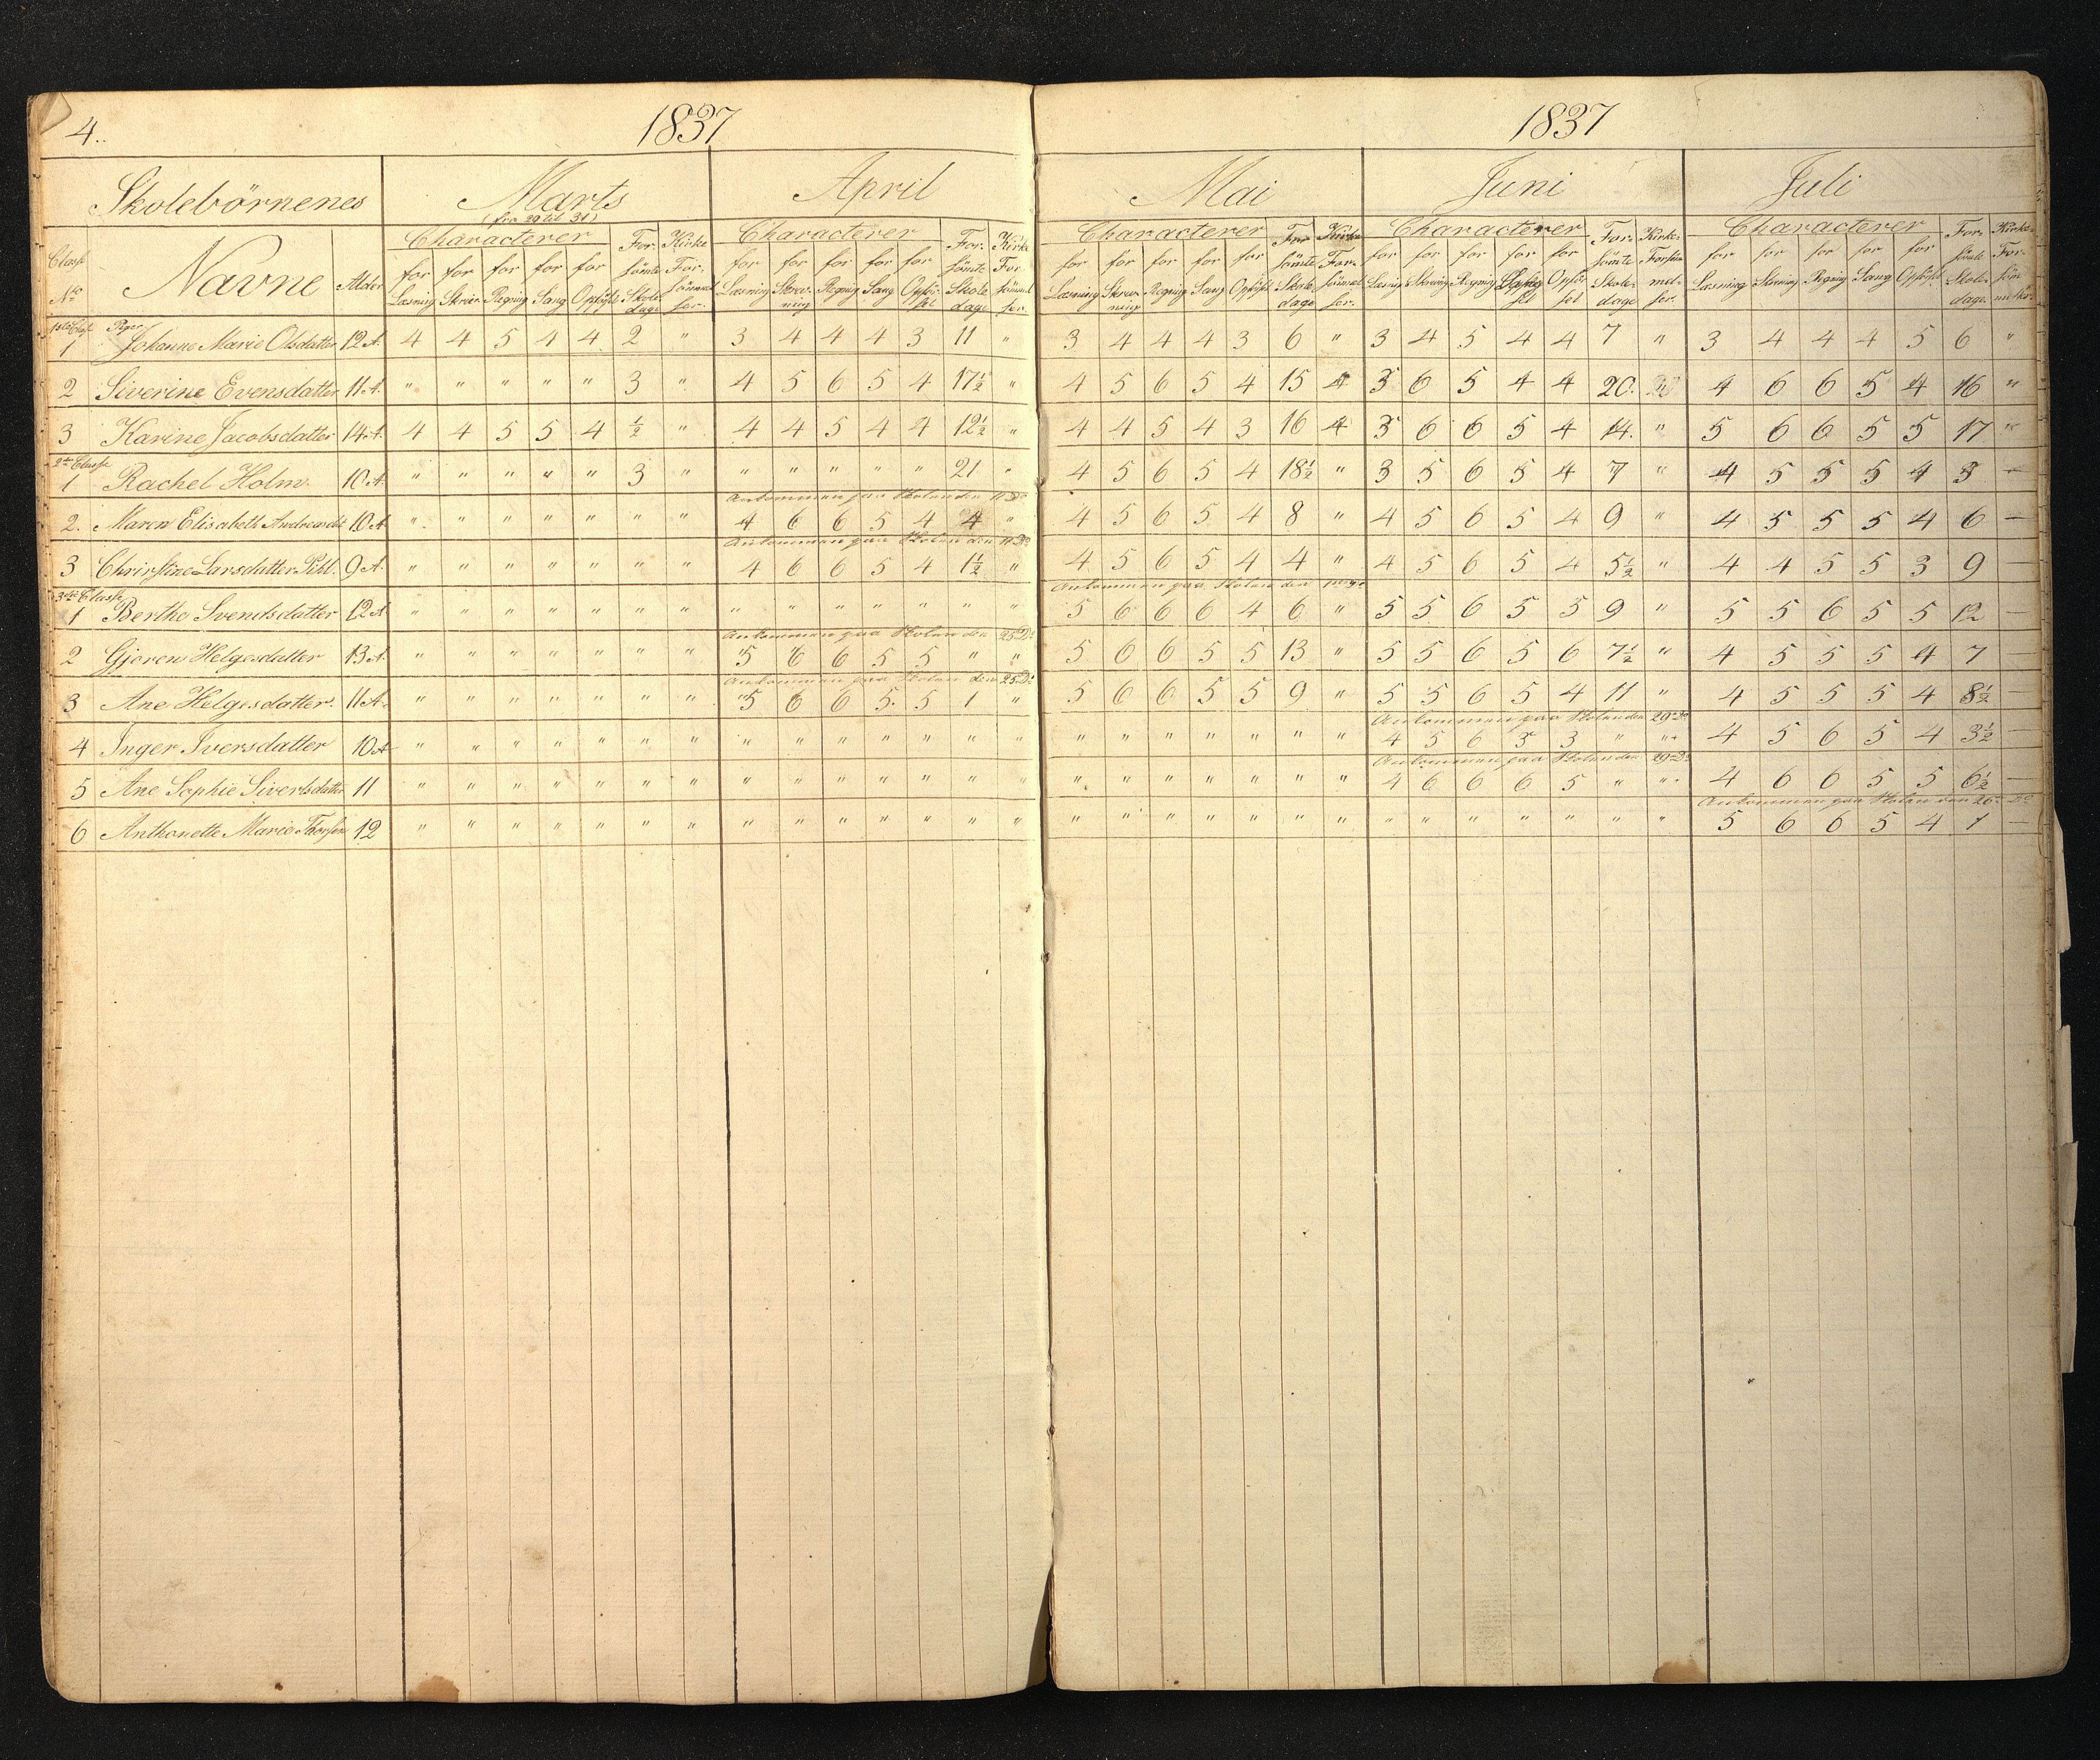 4.. 1837 1837
Skolebörnenes Marts April Mai Juni Juli
(fra 29 til 31)
Classe No Navne Alder
Characterer For- Kirke Characterer For- Kirke Characterer For Kirke Characterer For- Kirke- Characterer For- Kirke-
for for for for for sömte For- for for for for for sömte For- for for for for for sömte For- for for for for for sömte for for for for for sömte For-
Læsning Skriv- Regning Sang Opförs Skole dage Læsning Skriv- ning Regning Sang Opför- sel Skole dage Læsning Skriv- ning Regning Sang Opförs Skole dage Læsning Skrivning Regning Sang Opför sel Skole- dage Læsning Skrivning Regning Sang Opförs Skole- dage
1ste Classe Piger
1 Johanne Marie Olsdatter 12 A. 4 4 5 4 4 2 " 3 4 4 4 3 11 " 3 4 4 4 3 6 " 3 4 5 4 4 7 " 3 4 4 4 5 6 "
2 Siverine Evensdatter 11 A. " " " " " 3 " 4 5 6 5 4 17½ " 4 5 6 5 4 15 4 3 6 5 4 4 20. 4 6 6 5 4 16 "
3 Karine Jacobsdatter 14 A. 4 4 5 5 4 ½ " 4 4 5 4 4 12½ " 4 4 5 4 3 16 4 3 6 6 5 4 14. " 5 6 6 5 5 17 "
2den Classe
1 Rachel Holm 10 A. " " " " " 3 " " " " " " 21 " 4 5 6 5 4 18½ " 3 5 6 5 4 7 " 4 5 5 5 4 3 —
Ankommen paa Skolen den 11 Do
2. Maren Elisabeth Andreasdt 10 A " " " " " " " 4 6 6 5 4 4 " 4 5 6 5 4 8 " 4 5 6 5 4 9 " 4 5 5 5 4 6 —
Ankommen paa Skolen den 11 Do
3 Christine Larsdatter Pihl. 9 A. " " " " " " " 4 6 6 5 4 1½ " 4 5 6 5 4 4 " 4 5 6 5 4 5½ " 4 4 5 5 3 9 —
3die Classe Ankommen paa Skolen den
1 Berthe Svendsdatter 12 A " " " " " " " " " " " " " " 5 6 6 6 4 6 " 5 5 6 5 5 9 " 5 5 6 5 5 12 —
Ankommen paa Skolen den 25 Do
2 Gjoren Helgesdatter 13 A. " " " " " " " 5 6 6 5 5 " " 5 6 6 5 5 13 " 5 5 6 5 6 7½ " 4 5 5 5 4 7 —
Ankommen paa Skolen den 25 Do
3 Ane Helgesdatter. 11 A. " " " " " " " 5 6 6 5. 5 1 " 5 6 6 5 5 9 " 5 5 6 5 4 11 " 4 5 5 5 4 8½ —
Ankommen paa Skolen den 29 Do
4 Inger Iversdatter 10 A " " " " " " " " " " " " " " " " " " " " " 4 5 6 5 3 " " 4 5 6 5 4 3½ —
Ankommen paa Skolen den 29 Do
5 Ane Sophie Sivertsdatter 11 " " " " " " " " " " " " " " " " " " " " " 4 6 6 6 5 " " 4 6 6 5 5 6½ —
Ankommen paa Skolen den 26 Do
6 Anthonette Marie Thorsen 12 " " " " " " " " " " " " " " " " " " " " " " " " " " " " 5 6 6 5 4 1 —